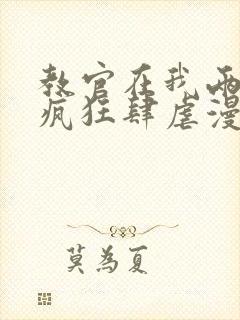 教官在我两
疯狂肆虐漫
莫为夏